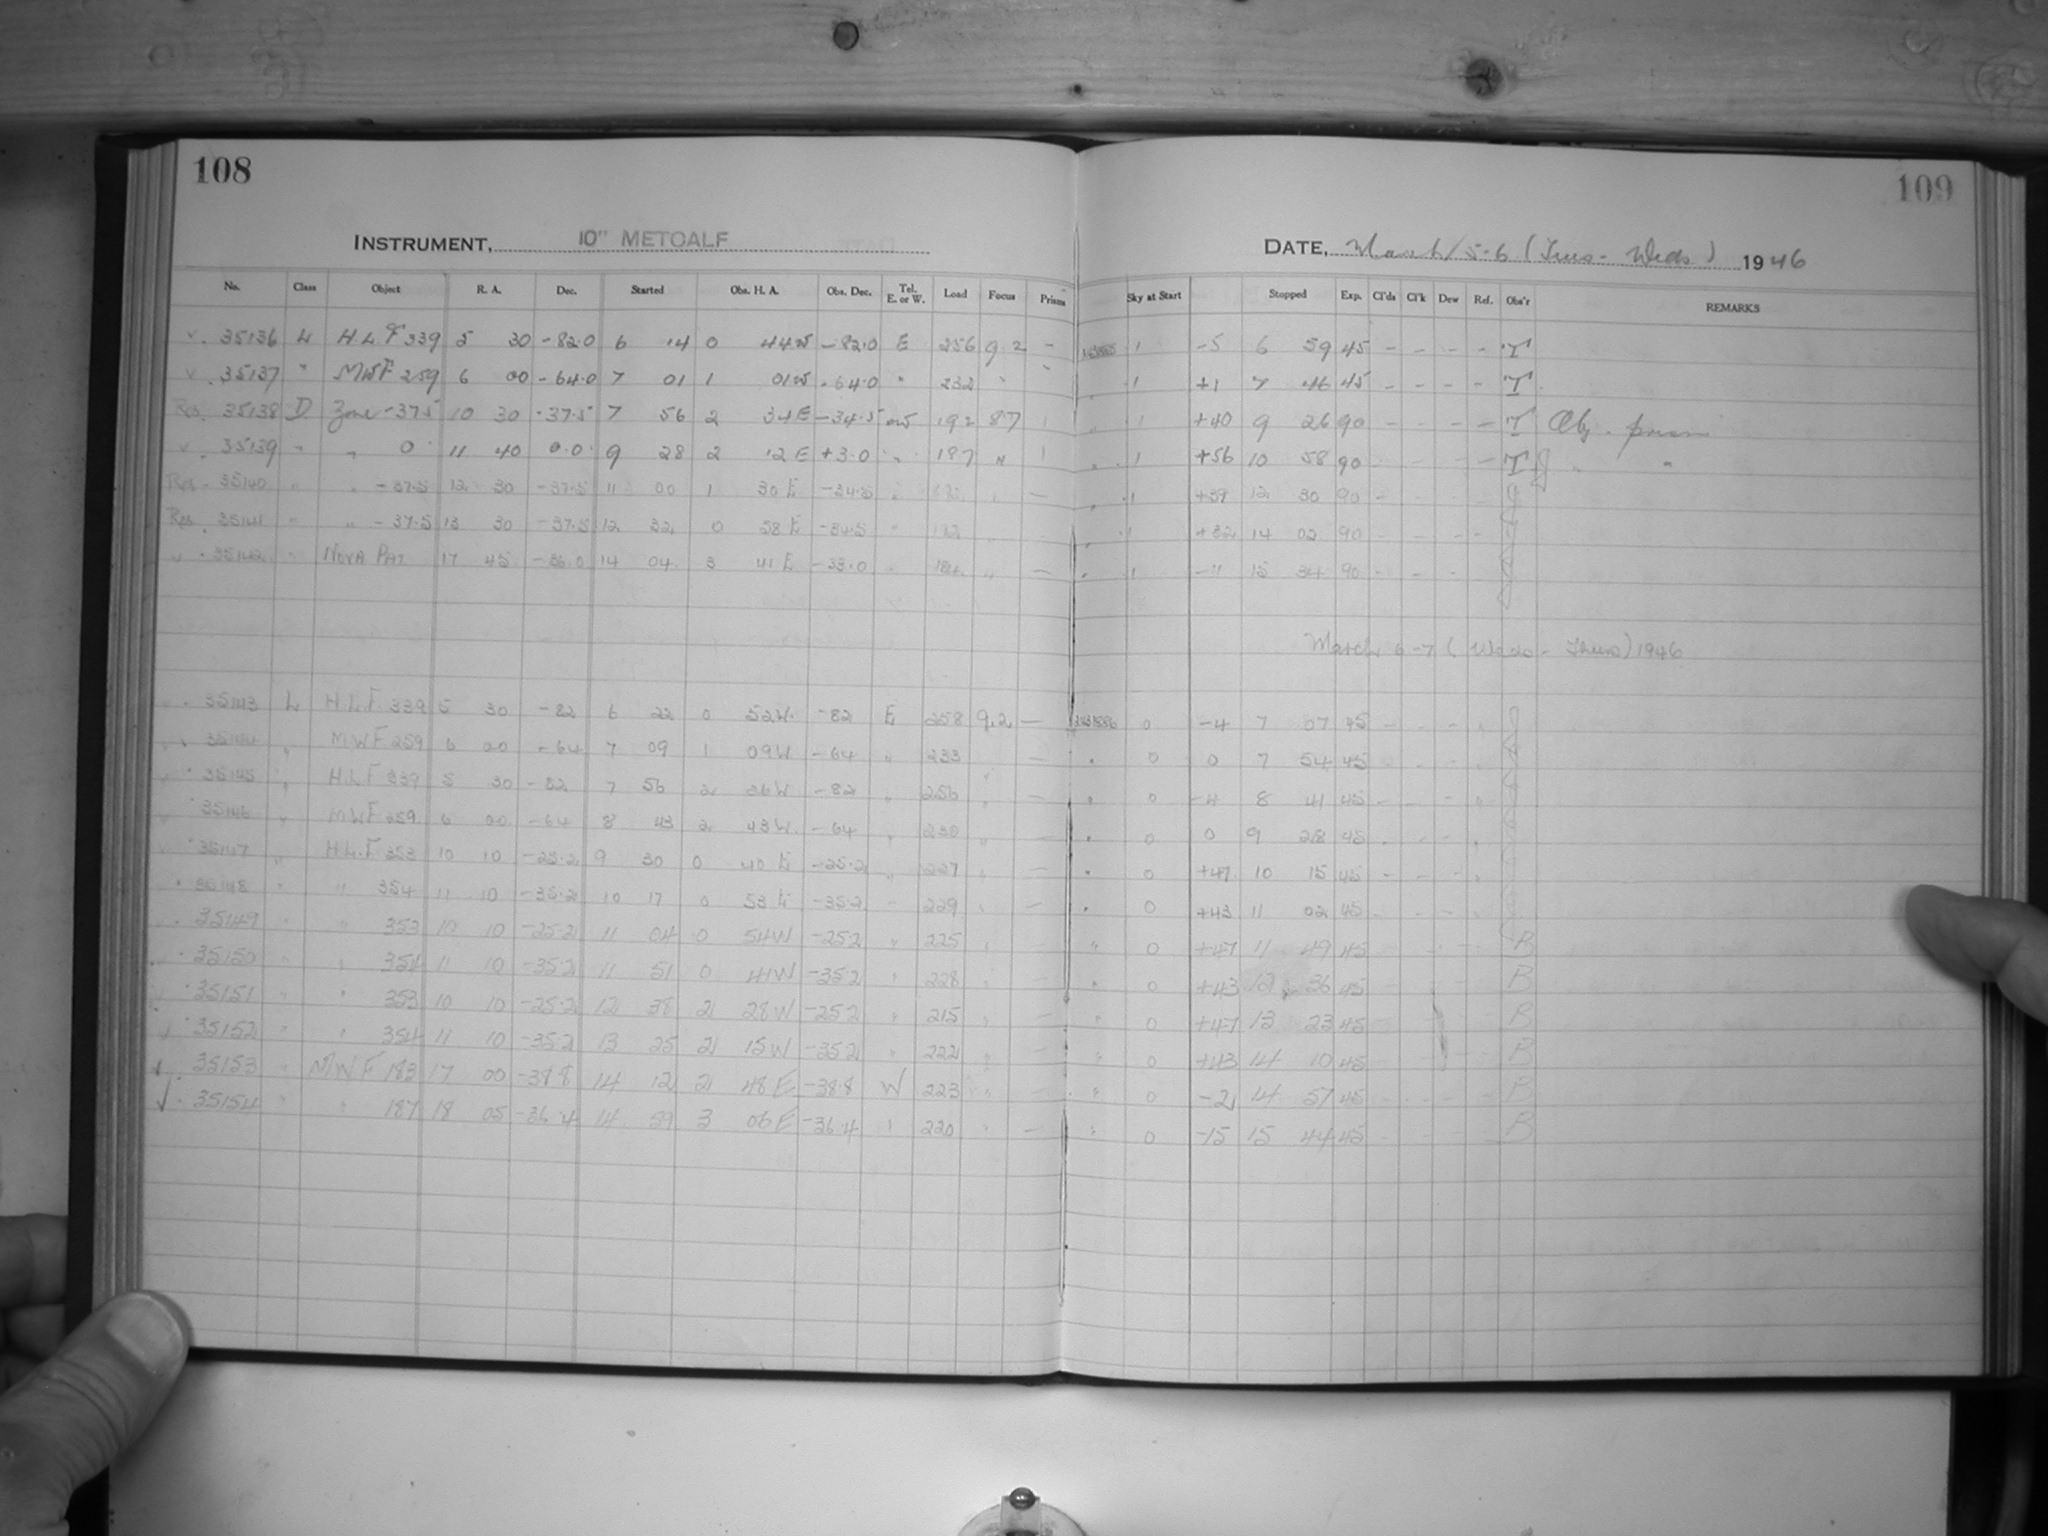 108
109
INSTRUMENT, 10" METCALF
DATE, March 5-6 (Tues - Weds) 1946
No. Class Object R. A. Dec. Started Obs. H. A. Obs. Dec. Tel. E. or W. Load Focus Prism Sky at Start Stopped Exp. Cl'ds Cl'k Dew Ref. Obs'r REMARKS
v. 35136 L H L F 339 5 30 -82.0 6 14 0 44W -82.0 E 256 9.2 - 1 -5 6 59 45 - - - - T
v. 35137 " MWF 259 6 00 -64.0 7 01 1 01W -64.0 " 232 " " 1 +1 7 46 45 - - - - T
Res. 35138 D Zone -37.5 10 30 -37.5 7 56 2 34E -34.5 W 192 8.7 1 " 1 +40 9 26 90 - - - - T Obj. prism
v. 35139 " " 0 11 40 0.0 9 28 2 12E +3.0 " 187 " 1 " 1 +56 10 58 90 - - - - T " "
Res. 35140 " " -37.5 12 30 -37.5 11 00 1 30E -34.5 " " - " 1 +39 12 30 90 -
Res. 35141 " " -37.5 13 30 -37.5 12 32 0 58E -34.5 " 192 " 1 +32 14 02 90 - - - -
v. 35142 " NOVA 17 45 -36.0 14 04 3 41E -33.0 " 184 " - " 1 -11 15 34 90 - - -
March 6-7 (Weds - Thurs) 1946
. 35143 L H.L.F. 339 5 30 -82 6 22 0 52W. -82 E 258 9.2 - 0 -4 7 07 45 - - - -
. 35144 " MWF 259 6 00 -64 7 09 1 09W -64 " 233 - " 0 0 7 54 45 - - -
. 35145 " H.L.F 339 5 30 -82 7 56 2 26W -82 " 256 " - " 0 -4 8 41 45 - - - "
. 35146 " MWF 259 6 00 -64 8 43 2 43W -64 " 230 " - " 0 0 9 28 45
. 35147 " H.L.F 353 10 10 -25.2 9 30 0 40E -25.2 " 227 " - " 0 +47 10 15 45 - - -
. 35148 " " 354 11 10 -35.2 10 17 0 53E -35.2 " 229 " - " 0 +43 11 02 45
. 35149 " " 353 10 10 -25.2 11 04 0 54W -25.2 " 225 " - " 0 +47 11 49 45 B
. 35150 " " 354 11 10 -35.2 11 51 0 41W -35.2 " 228 " - " 0 +43 12 36 45 B
. 35151 " " 353 10 10 -25.2 12 38 2 28W -25.2 " 215 " - " 0 +47 13 23 45 B
. 35152 " " 354 11 10 -35.2 13 25 2 15W -35.2 " 222 " - " 0 +43 14 10 45 B
. 35153 " MWF 183 17 00 -38.8 14 12 2 48E -38.8 W 223 " - " 0 -2 14 57 45 B
√. 35154 " " 187 18 05 -36.4 14 59 3 06E -36.4 " 220 " - " 0 -15 15 44 45 B